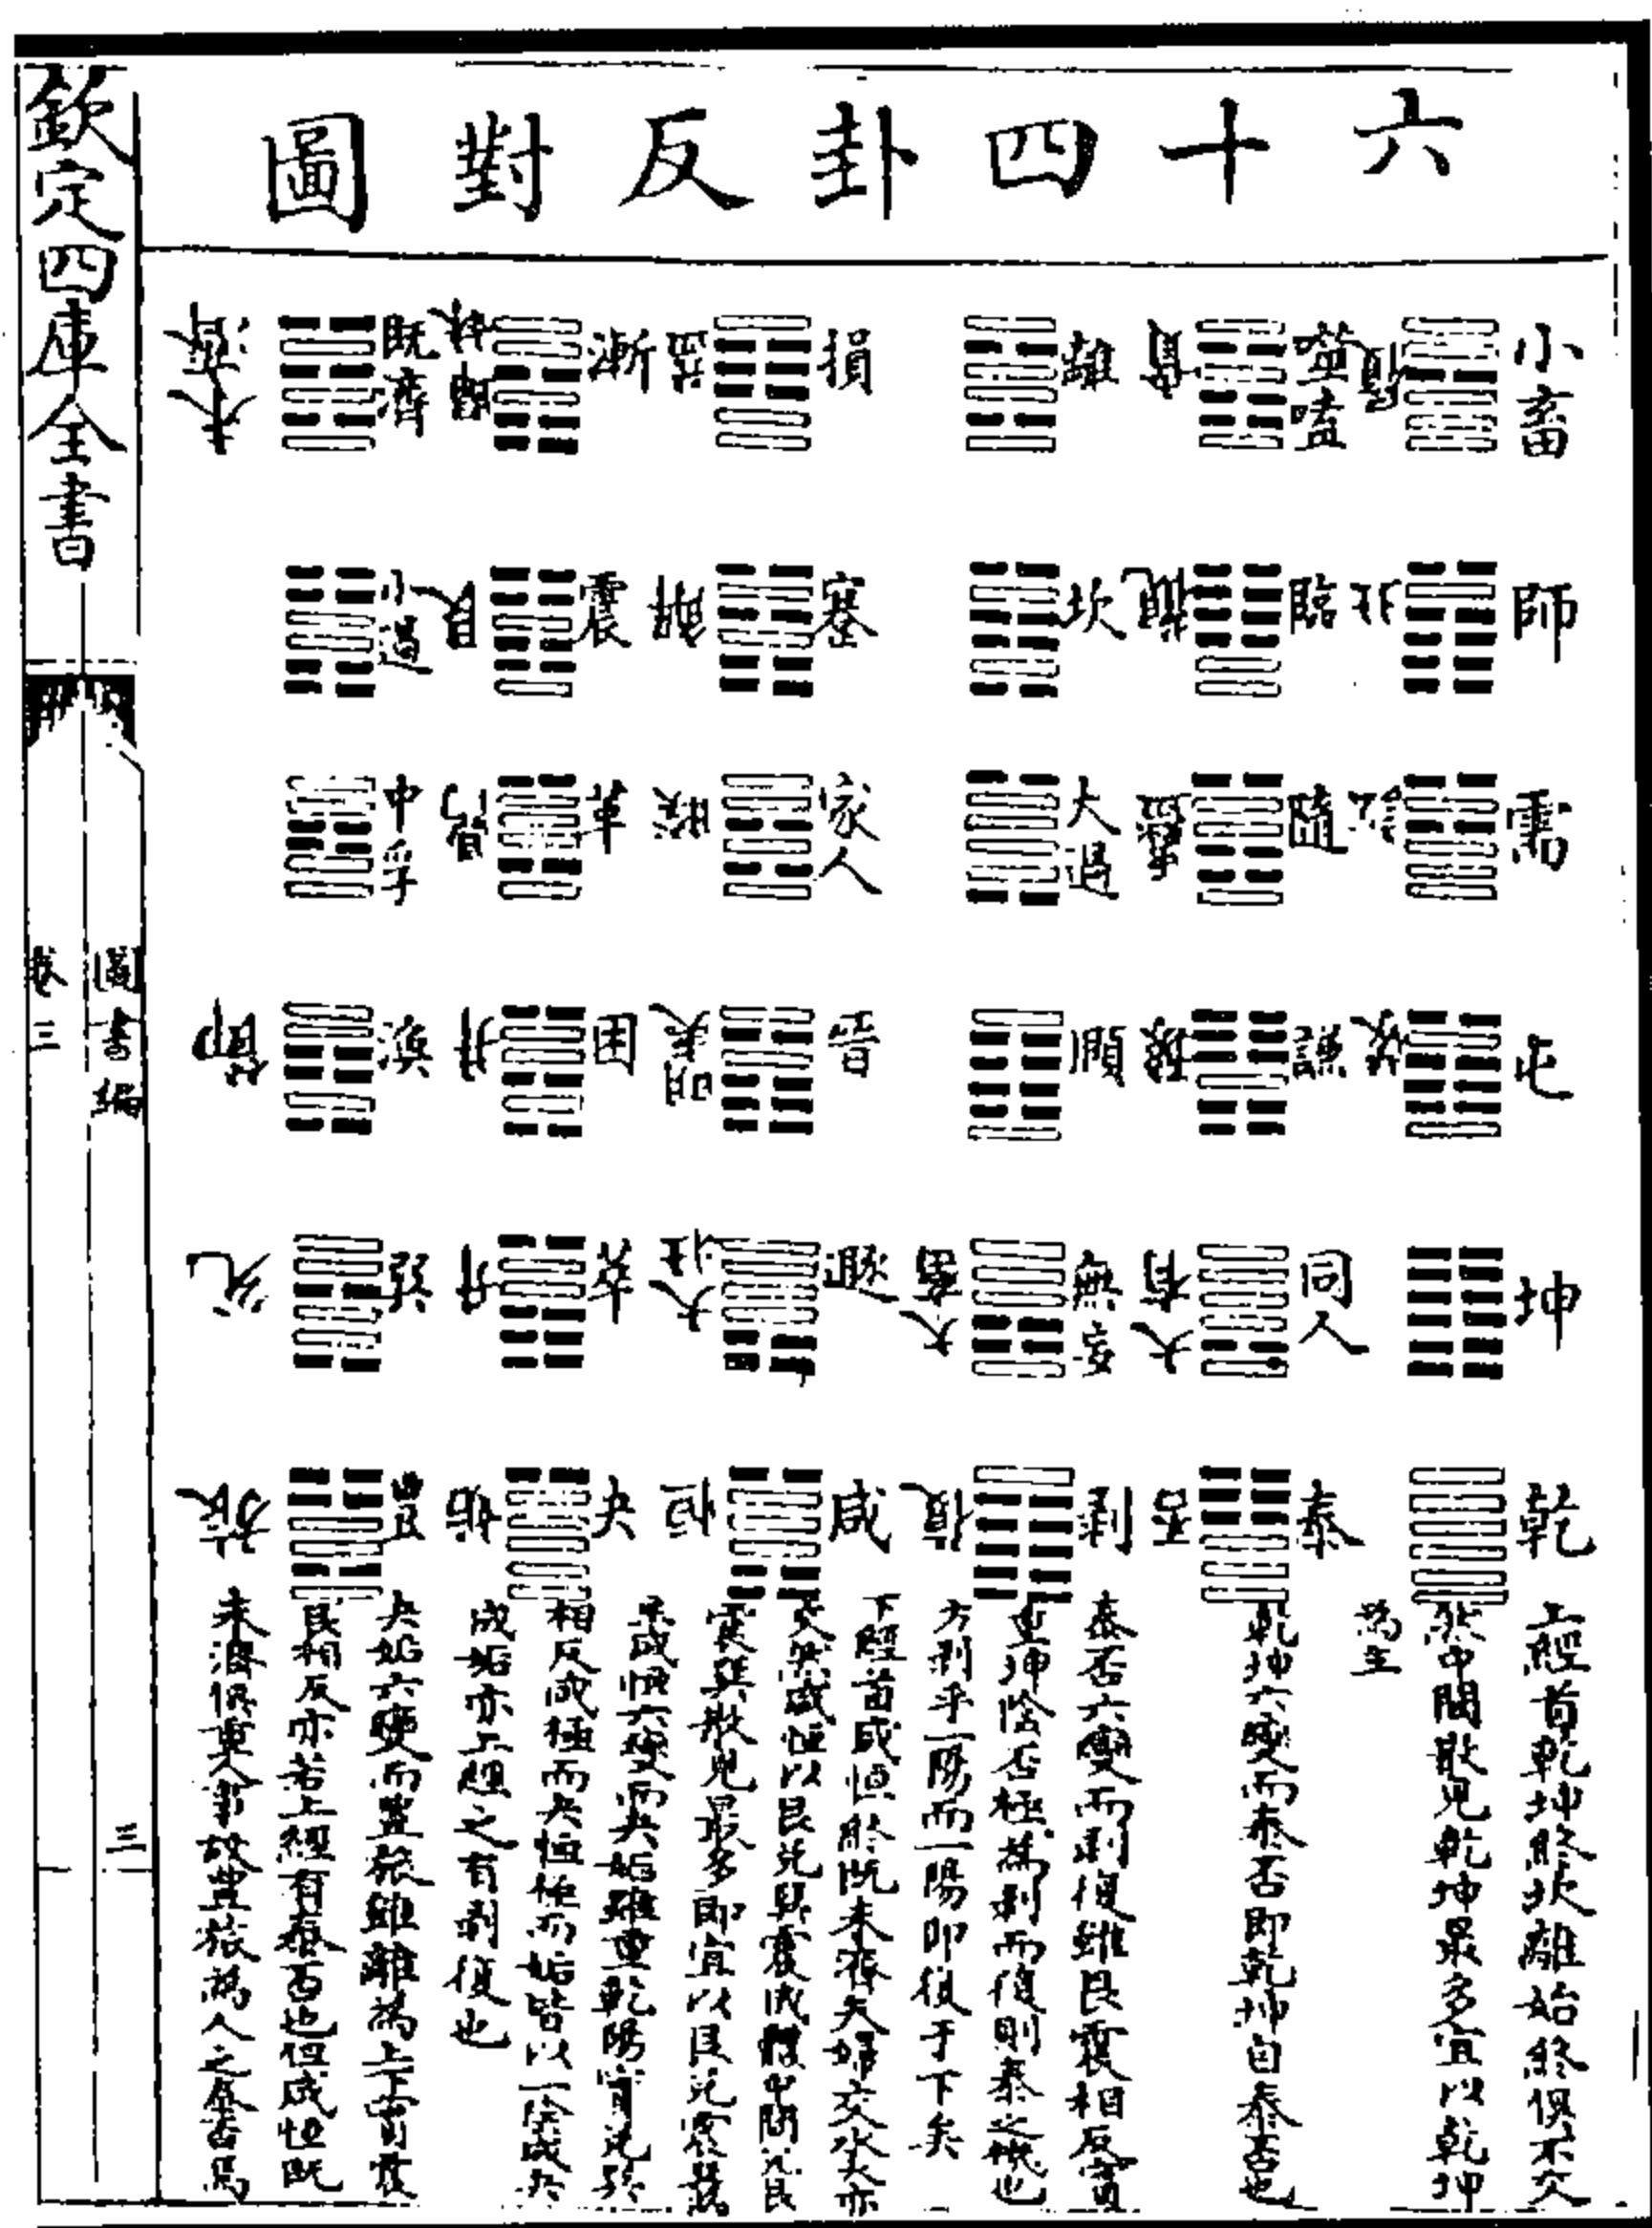 六十四卦反對圖
小畜 履 噬嗑 賁 離 損 益 漸 歸妹 既濟 未濟
師 比 臨 觀 坎 蹇 解 震 艮 小過
需 訟 隨 蠱 大過 家人 睽 革 鼎 中孚
屯 蒙 謙 豫 頤 晉 明夷 困 井 渙 節
坤 同人 大有 無妄 大畜 遯 大壯 萃 升 巽 兌
乾 泰 否 剥 復 咸 恒 夬 姤 豐 旅
上經首乾坤終坎離始終俱不交
中間散見乾坤最多宜以乾坤
為主
乾坤六變而泰否即乾坤自泰否也
泰否六變而剥復雖艮震相反實
重坤陰否極為剥而復則泰之機也
方剥乎一陽而一陽即復于下矣
下經首咸恒終既未濟夫婦交水火亦
交況咸恒以艮兌巽震成體中間艮
震巽散見最多即宜以艮兌震巽
咸恒六變而夬姤雖重乾陽實兌巽
相反咸極而夬恒極而姤皆以一陰成夬
成姤亦上經之有剥復也
夬姤六變而豐旅雖離為上下實震
艮相反亦若上經有泰否也但咸恒既
未濟俱重人事故豐旅為人之泰否焉
欽定四庫全書
圖書編
卷三
三